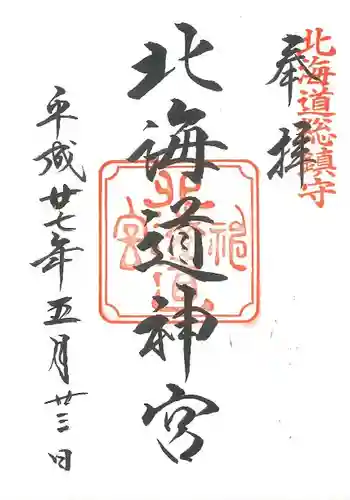 奉拝
北海道総鎮守
北海道神宮
北海道神宮
平成廿七年五月廿三日